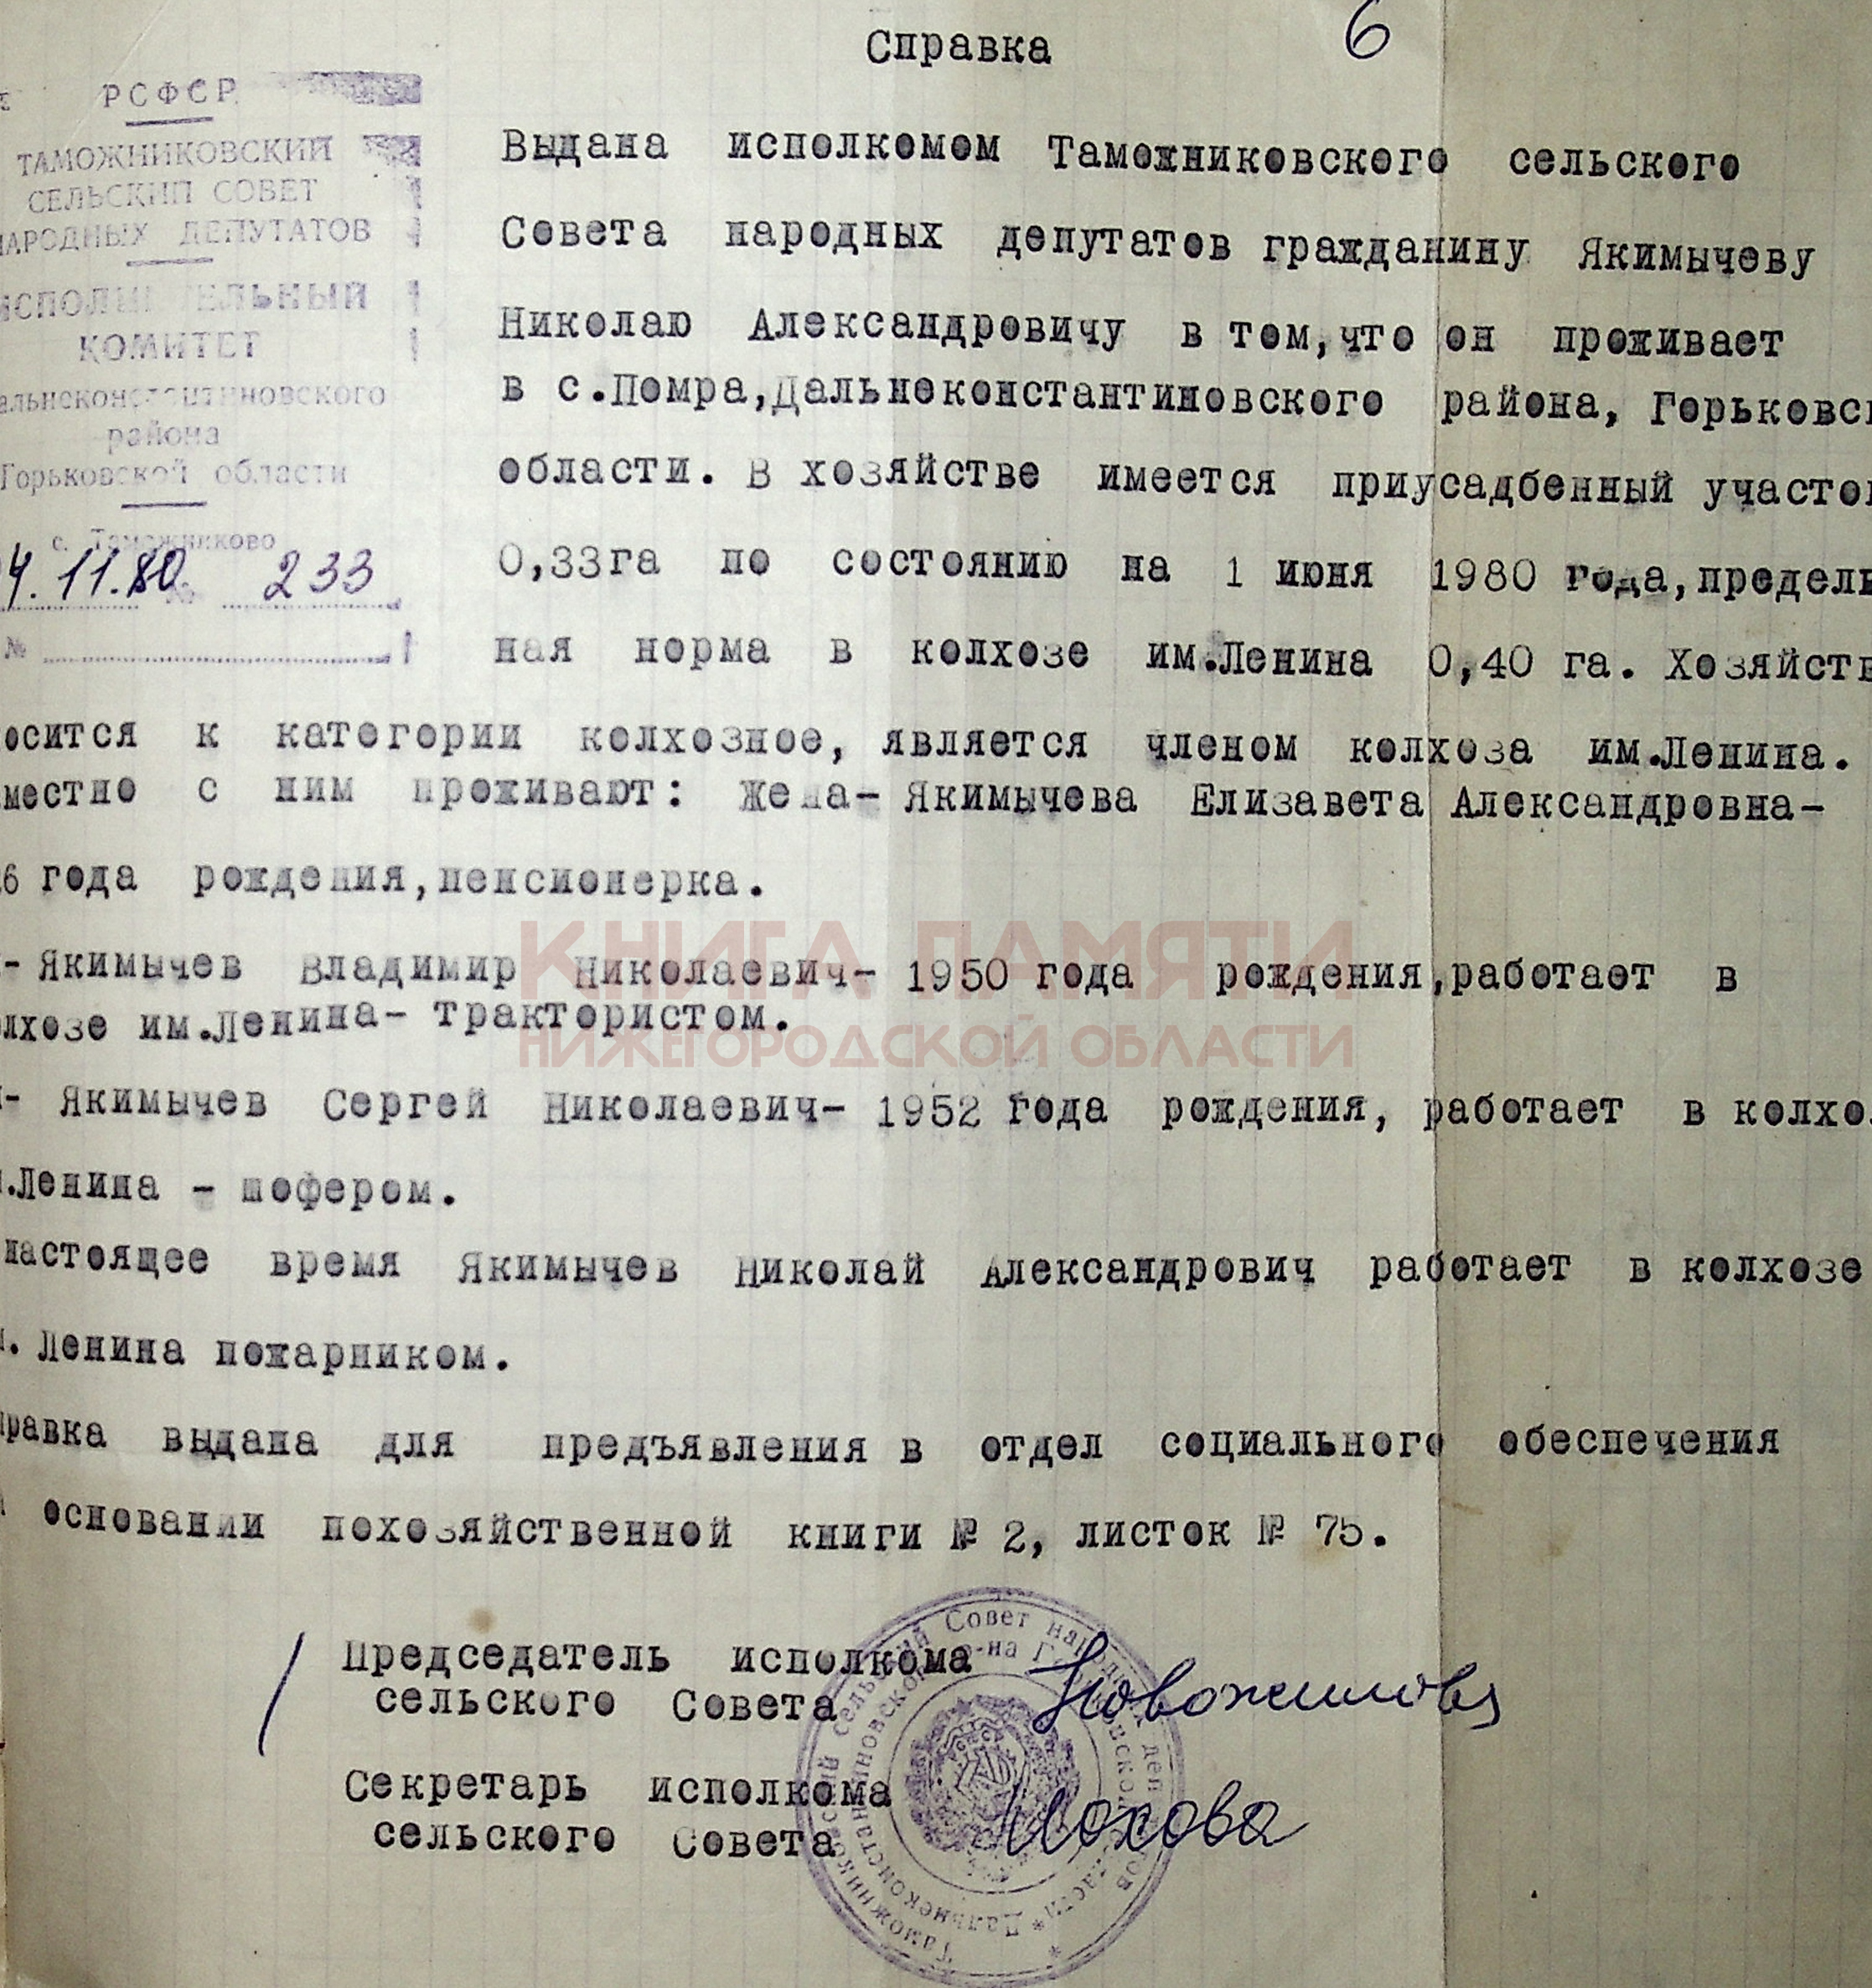 6
Справка
РСФСР
ТАМОЖНИКОВСКИЙ
СЕЛЬСКИЙ СОВЕТ
НАРОДНЫХ ДЕПУТАТОВ
ИСПОЛНИТЕЛЬНЫЙ
КОМИТЕТ
альнеконстантиновского
района
Горьковской области
с. Таможниково
4.11.80 № 233
№
Выдана исполкомом Таможниковского сельского
Совета народных депутатов гражданину Якимычеву
Николаю Александровичу в том,что он проживает
в с.Помра,Дальнеконстантиновского района, Горьковск
области. В хозяйстве имеется приусадбенный участок
0,33га по состоянию на 1 июня 1980 года,предель
ная норма в колхозе им.Ленина 0,40 га. Хозяйств
осится к категории колхозное, является членом колхоза им.Ленина.
местно с ним проживают: жена- Якимычева Елизавета Александровна-
6 года рождения,пенсионерка.
- Якимычев Владимир Николаевич- 1950 года рождения,работает в
лхозе им.Ленина- трактористом.
- Якимычев Сергей Николаевич- 1952 года рождения, работает в колхо
.Ленина - шофером.
настоящее время Якимычев Николай Александрович работает в колхозе
. Ленина пожарником.
правка выдана для предъявления в отдел социального обеспечения
основании похозяйственной книги № 2, листок № 75.
Председатель исполкома
сельского Совета
Новожилова
Секретарь исполкома
сельского Совета
Мохова
Таможниковский сельский Совет народных депутатов
Дальнеконстантиновского р-на Горьковской области
КНИГА ПАМЯТИ
НИЖЕГОРОДСКОЙ ОБЛАСТИ